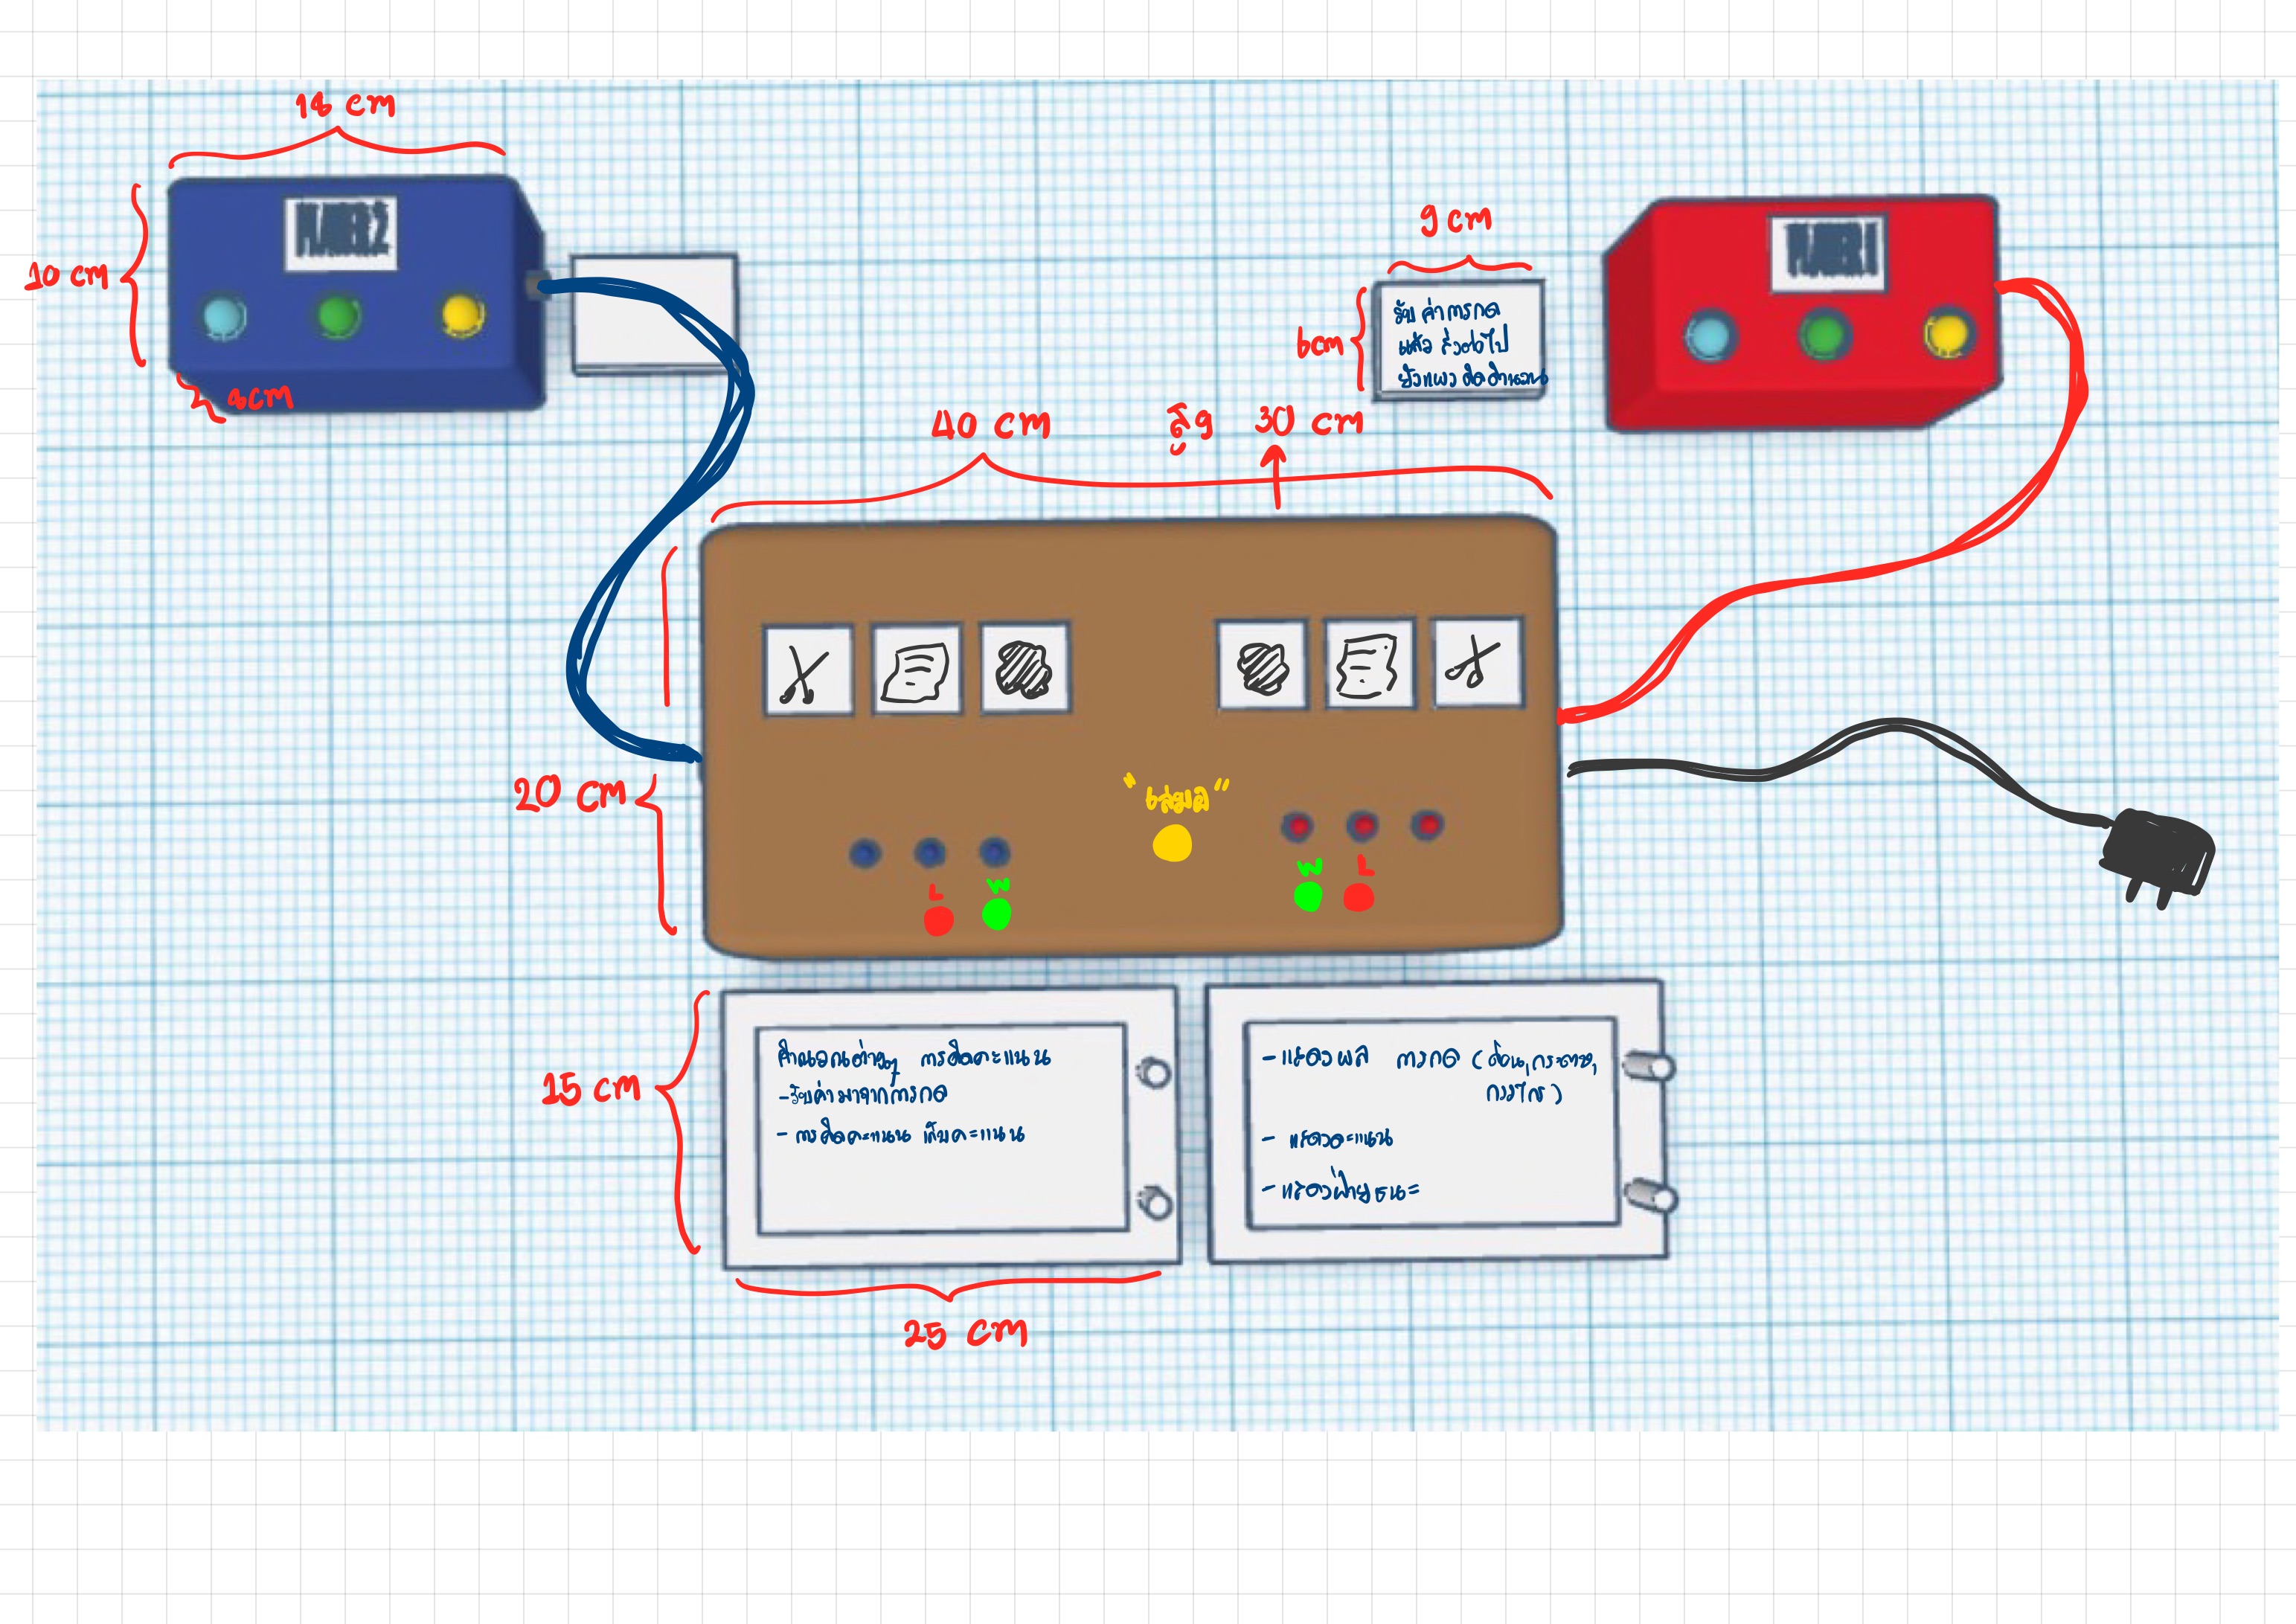 18 cm
PLAYER 2
10 cm
8cm
9 cm
6cm
รับ ค่า การกด
แล้ว ส่งต่อไป
ยังแผง คิดคำนวน
PLAYER 1
40 cm
สูง 30 cm
20 cm
"เสมอ"
L W
W L
15 cm
คำนวณต่างๆ การคิดคะแนน
-รับค่ามาจากการกด
- การคิดคะแนน เก็บคะแนน
25 cm
-แสดงผล การกด (ค้อน,กระดาษ,
กรรไกร)
- แสดงคะแนน
-แสดงฝ่ายชนะ